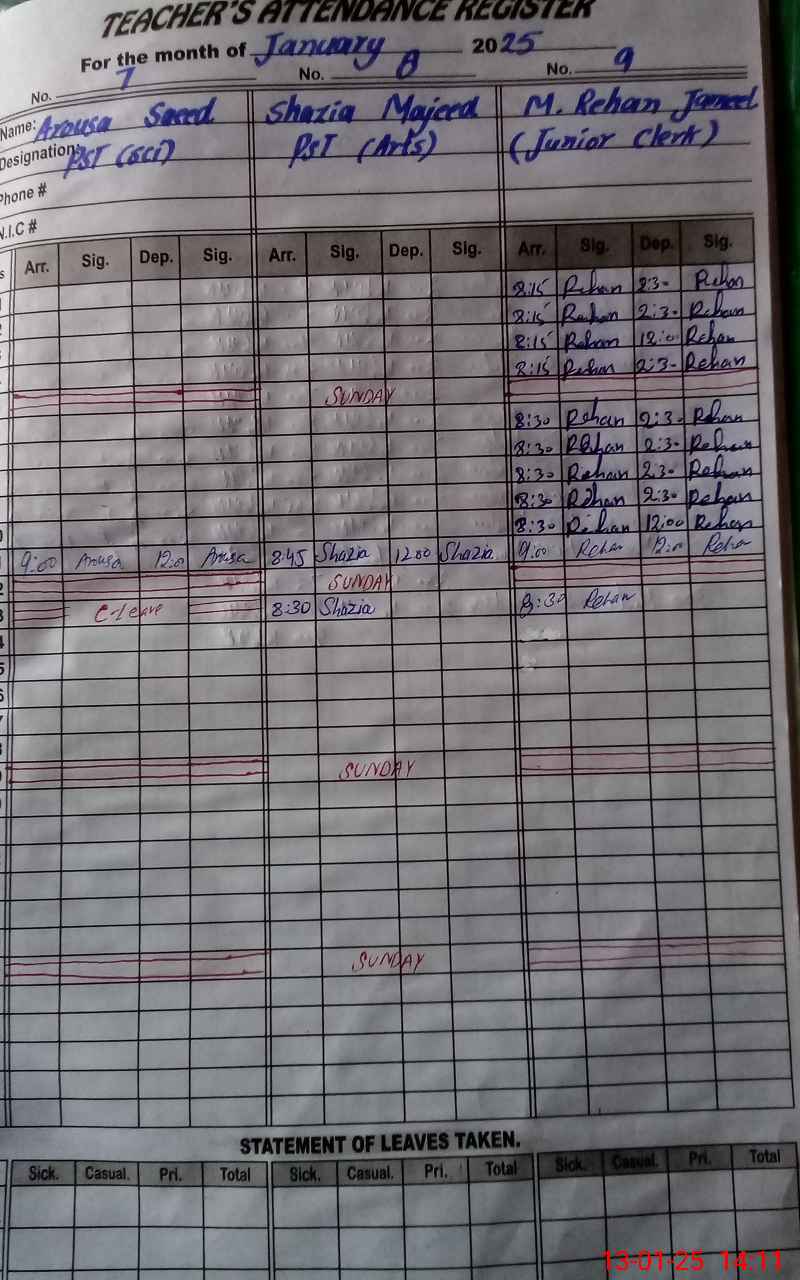 TEACHER'S ATTENDANCE REGISTER
For the month of January 2025
No. 7 No. 8 No. 9
Name: Arousa Saeed Shazia Majeed M. Rehan Jameel
Designation: PST (SCI) PST (Arts) (Junior Clerk)
Phone #
N.I.C #
Arr. Sig. Dep. Sig. Arr. Sig. Dep. Sig. Arr. Sig. Dep. Sig.
8:15 Rehan 2:30 Rehan
8:15 Rehan 2:30 Rehan
8:15 Rehan 12:00 Rehan
8:15 Rehan 2:30 Rehan
SUNDAY
8:30 Rehan 2:30 Rehan
8:30 Rehan 2:30 Rehan
8:30 Rehan 2:30 Rehan
8:30 Rehan 2:30 Rehan
8:30 Rehan 12:00 Rehan
9:00 Arousa 12:00 Arousa 8:45 Shazia 12:00 Shazia 9:00 Rehan 12:00 Rehan
SUNDAY
C-leave 8:30 Shazia 8:30 Rehan
4
5
6
SUNDAY
SUNDAY
STATEMENT OF LEAVES TAKEN.
Sick. Casual. Pri. Total Sick. Casual. Pri. Total Sick. Casual. Pri. Total
13-01-25 14:11